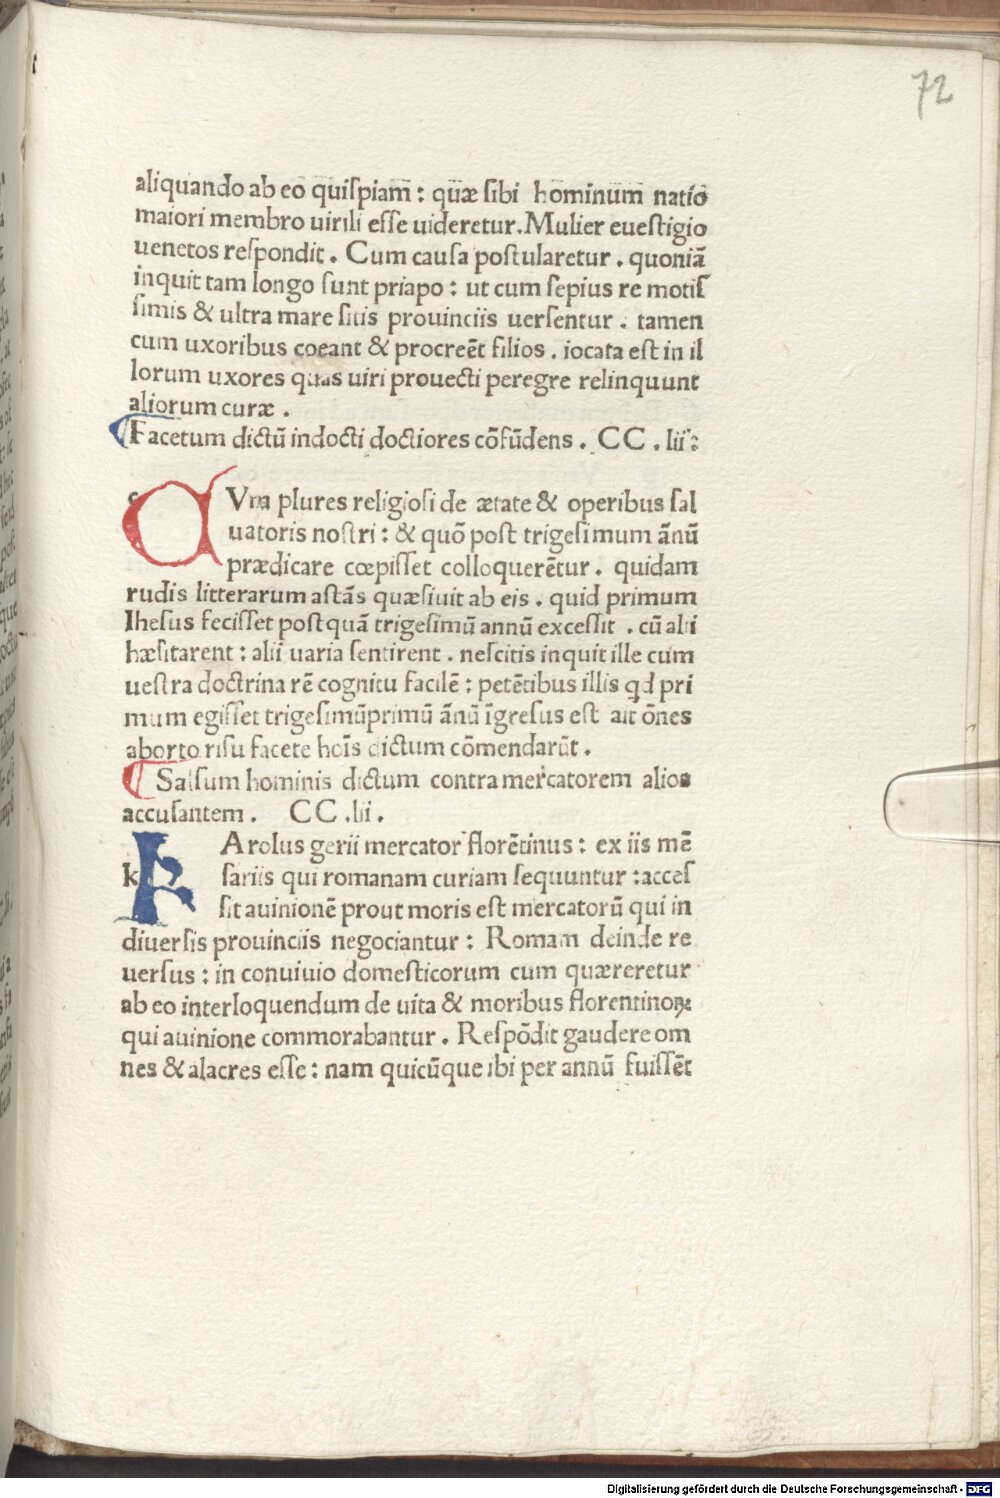 72
aliquando ab eo quiſpiam : quæ ſibi hominum natio
maiori membro uirili eſſe uideretur. Mulier eueſtigio
uenetos reſpondit . Cum cauſa poſtularetur . quoniā
inquit tam longo ſunt priapo : ut cum ſepius re motiſ
ſimis & ultra mare ſitis prouinciis uerſentur . tamen
cum uxoribus coeant & procreēt filios . iocata eſt in il
lorum uxores quas uiri prouecti peregre relinquunt
aliorum curæ .
Facetum dictū indocti doctiores cōfūdens . CC . li :
C Vm plures religioſi de ætate & operibus ſal
uatoris noſtri : & quō poſt trigeſimum ānū
prædicare cœpiſſet colloquerētur . quidam
rudis litterarum aſtās quæſiuit ab eis . quid primum
Iheſus feciſſet poſtquā trigeſimū annū exceſſit . cū alii
hæſitarent : alii uaria ſentirent . neſcitis inquit ille cum
ueſtra doctrina rē cognitu facilē : petētibus illis qd pri
mum egiſſet trigeſimūprimū ānū īgreſus eſt ait ōnes
aborto riſu facete hoīs dictum cōmendarūt .
Salſum hominis dictum contra mercatorem alios
accuſantem . CC .lii .
k K Arolus gerii mercator florētinus : ex iis mē
ſariis qui romanam curiam ſequuntur : acceſ
ſit auinionē prout moris eſt mercatorū qui in
diuerſis prouinciis negociantur : Romam deinde re
uerſus : in conuiuio domeſticorum cum quæreretur
ab eo interloquendum de uita & moribus florentinoꝝ
qui auinione commorabantur . Reſpōdit gaudere om
nes & alacres eſſe : nam quicūque ibi per annū fuiſſēt
Digitalisierung gefördert durch die Deutsche Forschungsgemeinschaft - DFG